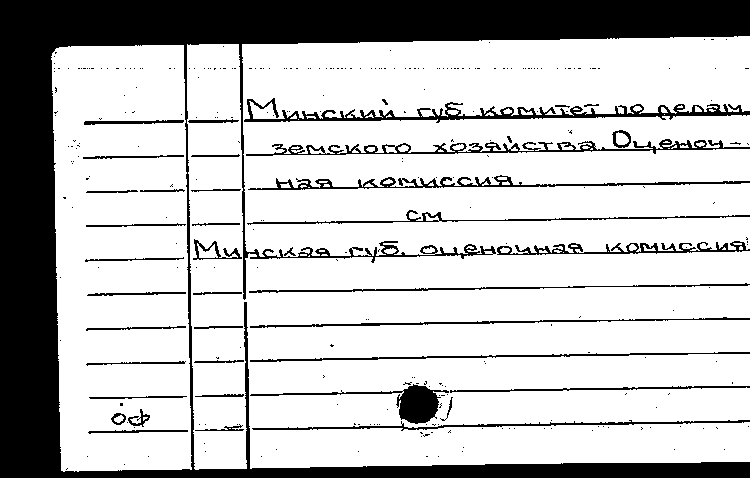 Минский губ. комитет по делам
земского хозяйства. Оценоч-
ная комиссия.
см
Минская губ. оценочная комиссия
оф